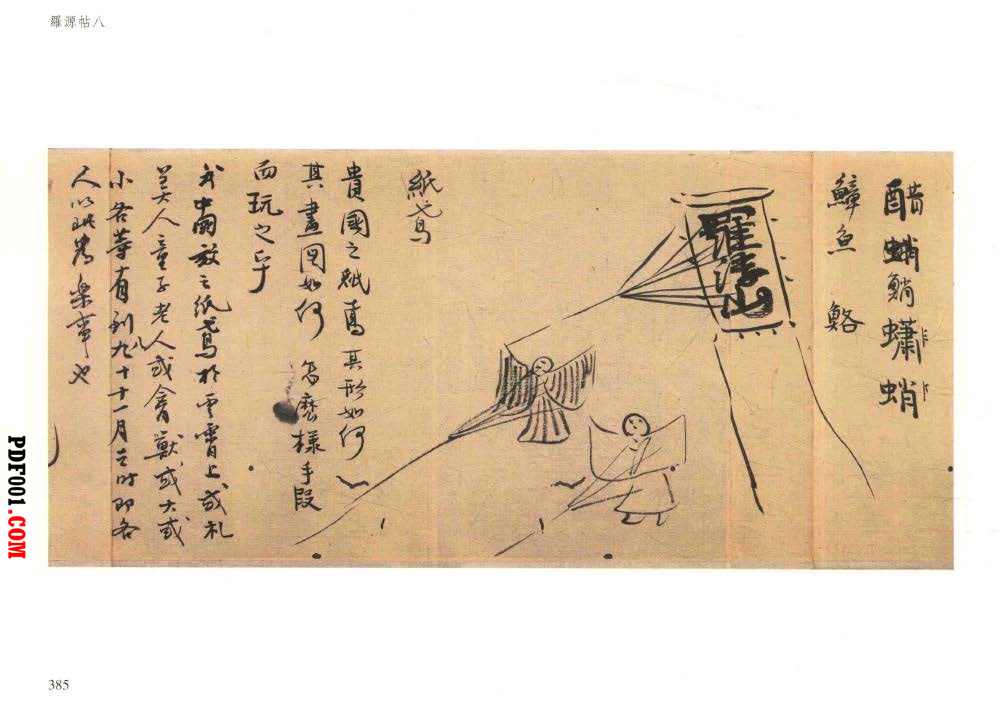 羅源帖八
醋蛸鮹蠨蛸
鱆魚 鮥
羅浮山
紙鳶
貴國之紙鳶其形如何
其畫図如何 怎麼樣手段
而玩之乎
我中國放之紙鳶於雲霄上或札
美人童子老人或禽獸或大或
小各等有到八九十十一月之時即各
人以此為樂事也
PDF001.COM
385